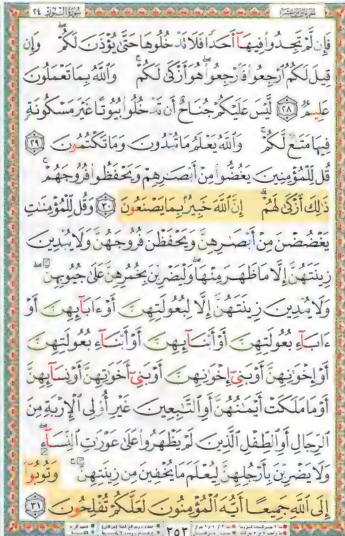 فَإِن لَّمْ تَجِدُوا۟ فِيهَآ أَحَدًۭا فَلَا تَدْخُلُوهَا حَتَّىٰ يُؤْذَنَ لَكُمْ ۖ وَإِن
قِيلَ لَكُمُ ٱرْجِعُوا۟ فَٱرْجِعُوا۟ ۖ هُوَ أَزْكَىٰ لَكُمْ ۚ وَٱللَّهُ بِمَا تَعْمَلُونَ
عَلِيمٌۭ ٢٨ لَّيْسَ عَلَيْكُمْ جُنَاحٌ أَن تَدْخُلُوا۟ بُيُوتًا غَيْرَ مَسْكُونَةٍۢ
فِيهَا مَتَـٰعٌۭ لَّكُمْ ۚ وَٱللَّهُ يَعْلَمُ مَا تُبْدُونَ وَمَا تَكْتُمُونَ ٢٩
قُل لِّلْمُؤْمِنِينَ يَغُضُّوا۟ مِنْ أَبْصَـٰرِهِمْ وَيَحْفَظُوا۟ فُرُوجَهُمْ ۚ
ذَٰلِكَ أَزْكَىٰ لَهُمْ ۗ إِنَّ ٱللَّهَ خَبِيرٌۢ بِمَا يَصْنَعُونَ ٣٠ وَقُل لِّلْمُؤْمِنَـٰتِ
يَغْضُضْنَ مِنْ أَبْصَـٰرِهِنَّ وَيَحْفَظْنَ فُرُوجَهُنَّ وَلَا يُبْدِينَ
زِينَتَهُنَّ إِلَّا مَا ظَهَرَ مِنْهَا ۖ وَلْيَضْرِبْنَ بِخُمُرِهِنَّ عَلَىٰ جُيُوبِهِنَّ ۖ
وَلَا يُبْدِينَ زِينَتَهُنَّ إِلَّا لِبُعُولَتِهِنَّ أَوْ ءَابَآئِهِنَّ أَوْ
ءَابَآءِ بُعُولَتِهِنَّ أَوْ أَبْنَآئِهِنَّ أَوْ أَبْنَآءِ بُعُولَتِهِنَّ
أَوْ إِخْوَٰنِهِنَّ أَوْ بَنِىٓ إِخْوَٰنِهِنَّ أَوْ بَنِىٓ أَخَوَٰتِهِنَّ أَوْ نِسَآئِهِنَّ
أَوْ مَا مَلَكَتْ أَيْمَـٰنُهُنَّ أَوِ ٱلتَّـٰبِعِينَ غَيْرِ أُو۟لِى ٱلْإِرْبَةِ مِنَ
ٱلرِّجَالِ أَوِ ٱلطِّفْلِ ٱلَّذِينَ لَمْ يَظْهَرُوا۟ عَلَىٰ عَوْرَٰتِ ٱلنِّسَآءِ ۖ
وَلَا يَضْرِبْنَ بِأَرْجُلِهِنَّ لِيُعْلَمَ مَا يُخْفِينَ مِن زِينَتِهِنَّ ۚ وَتُوبُوٓا۟
إِلَى ٱللَّهِ جَمِيعًا أَيُّهَ ٱلْمُؤْمِنُونَ لَعَلَّكُمْ تُفْلِحُونَ ٣١
٣٥٣